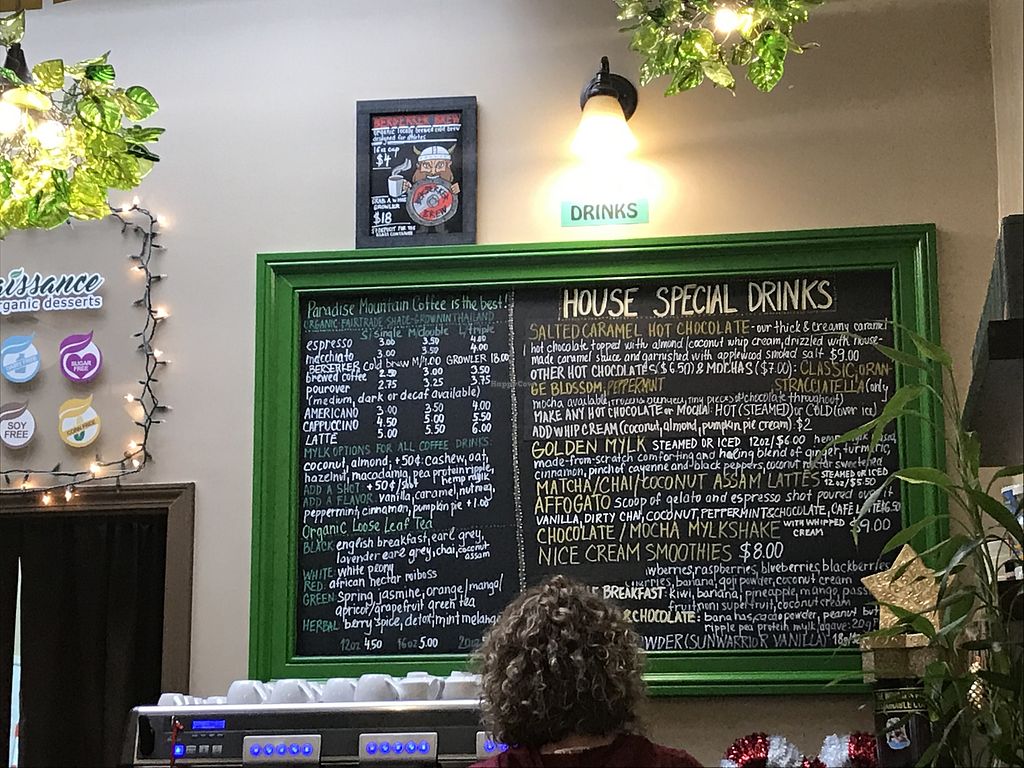 BERSERKER BREW
organic locally brewed cold brew
designed for athletes
16oz cup
$4
GRAB A
GROWLER
$18
BERSERKER
BREW
DRINKS
issance
rganic desserts
SUGAR
FREE
SOY
FREE
CORN FREE
Paradise Mountain Coffee is the best!
ORGANIC FAIRTRADE SHADE-GROWN IN THAILAND
S/single M/double L/triple
espresso 3.00 3.50 4.00
macchiato 3.00 3.50 4.00
BERSERKER cold brew M/4.00 GROWLER 18.00
brewed coffee 2.50 3.00 3.50
pourover 2.75 3.25 3.75
(medium, dark or decaf available)
AMERICANO 3.00 3.50 4.00
CAPPUCCINO 4.50 5.00 5.50
LATTE 5.00 5.50 6.00
MYLK OPTIONS FOR ALL COFFEE DRINKS:
coconut, almond, +50¢: cashew, oat,
hazelnut, macadamia, pea protein ripple,
hemp mylk
ADD A SHOT +50¢/shot
ADD A FLAVOR: vanilla, caramel, nutmeg,
peppermint, cinnamon, pumpkin pie +1.00
Organic Loose Leaf Tea
BLACK: english breakfast, earl grey,
lavender earl grey, chai, coconut
assam
WHITE: white peony
RED: african nectar roiboss
GREEN: Spring jasmine, orange/mango/
apricot/grapefruit green tea
HERBAL: berry spice, detox, mint melange
12oz 4.50 16oz 5.00 20oz
HOUSE SPECIAL DRINKS
SALTED CARAMEL HOT CHOCOLATE - our thick & creamy caramel
hot chocolate topped with almond/coconut whip cream, drizzled with house-
made caramel sauce and garnyshed with applewood smoked salt $9.00
OTHER HOT CHOCOLATES ($6.50) & MOCHAS ($7.00): CLASSIC, ORAN-
GE BLOSSOM, PEPPERMINT STRACCIATELLA (only
mocha available, blended, tiny pieces of chocolate throughout)
MAKE ANY HOT CHOCOLATE or MOCHA: HOT (STEAMED) or COLD (over ice)
ADD WHIP CREAM (coconut, almond, pumpkin pie cream) $2
GOLDEN MYLK STEAMED OR ICED 12oz/$6.00 hemp
made-from-scratch comforting and healing blend of ginger, turmeric,
cinnamon, pinch of cayenne and black peppers, coconut nectar sweetened
MATCHA/CHAI/COCONUT ASSAM LATTES STEAMED OR ICED
12oz/$5.50
AFFOGATO scoop of gelato and espresso shot poured over it
VANILLA, DIRTY CHAI, COCONUT, PEPPERMINT, CHOCOLATE, CAFE LATTE
CHOCOLATE / MOCHA MYLKSHAKE WITH WHIPPED
CREAM $9.00
NICE CREAM SMOOTHIES $8.00
wberries, raspberries, blueberries, blackberries
cherries, banana, goji powder, coconut cream
BREAKFAST: kiwi, banana, pineapple, mango, pass
fruit, noni superfruit, coconut cream
CHOCOLATE: bananas, cacao powder, peanut but
ripple pea protein mylk, agave: 20g
WDER (SUNWARRIOR VANILLA) 18g
HappyCow